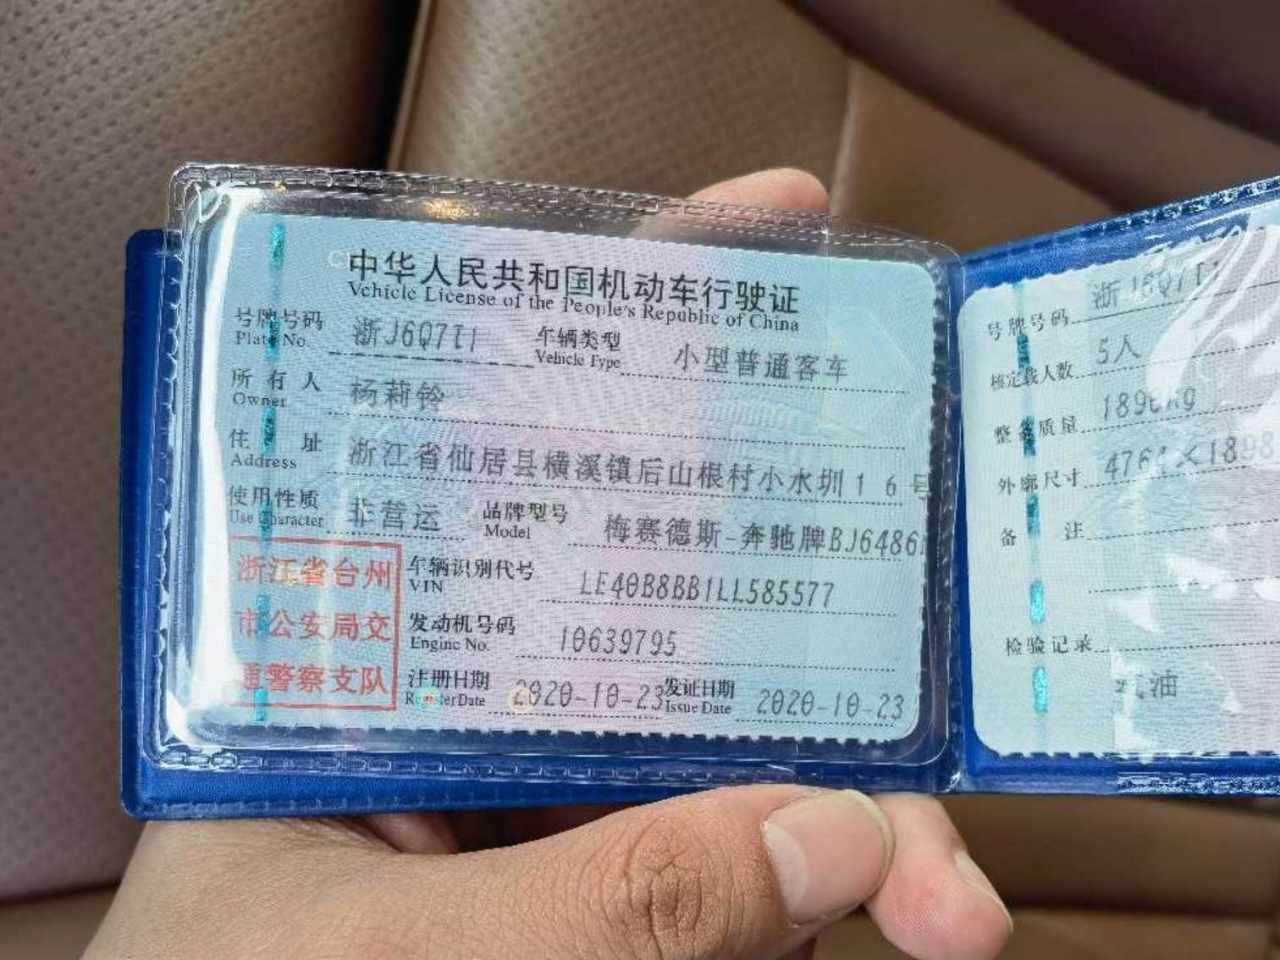 中华人民共和国机动车行驶证
Vehicle License of the People's Republic of China
号牌号码 浙J6Q7 车辆类型 小型普通客车
Plate No. Vehicle Type
所有人 杨莉铃
Owner
住址 浙江省仙居县横溪镇后山根村小水圳16号
Address
使用性质 非营运 品牌型号 梅赛德斯-奔驰牌BJ6486
Use Character Model
浙江省台州
市公安局交
通警察支队
车辆识别代号 LE40B8BB1LL585577
VIN
发动机号码 10639795
Engine No.
注册日期 2020-10-23 发证日期 2020-10-23
Register Date Issue Date
号牌号码 浙J6Q7
核定载人数 5人
整备质量
外廓尺寸 ×1898
备注
检验记录
油